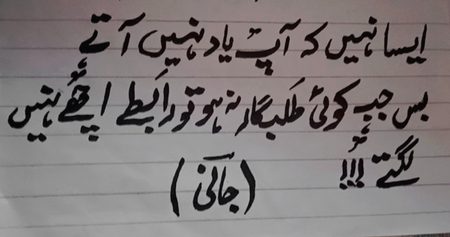 ایسا نہیں کہ آپ یاد نہیں آتے
بس جب کوئی طلبگار نہ ہو تو رابطے اچھے نہیں
لگتے !!!
(جانی)